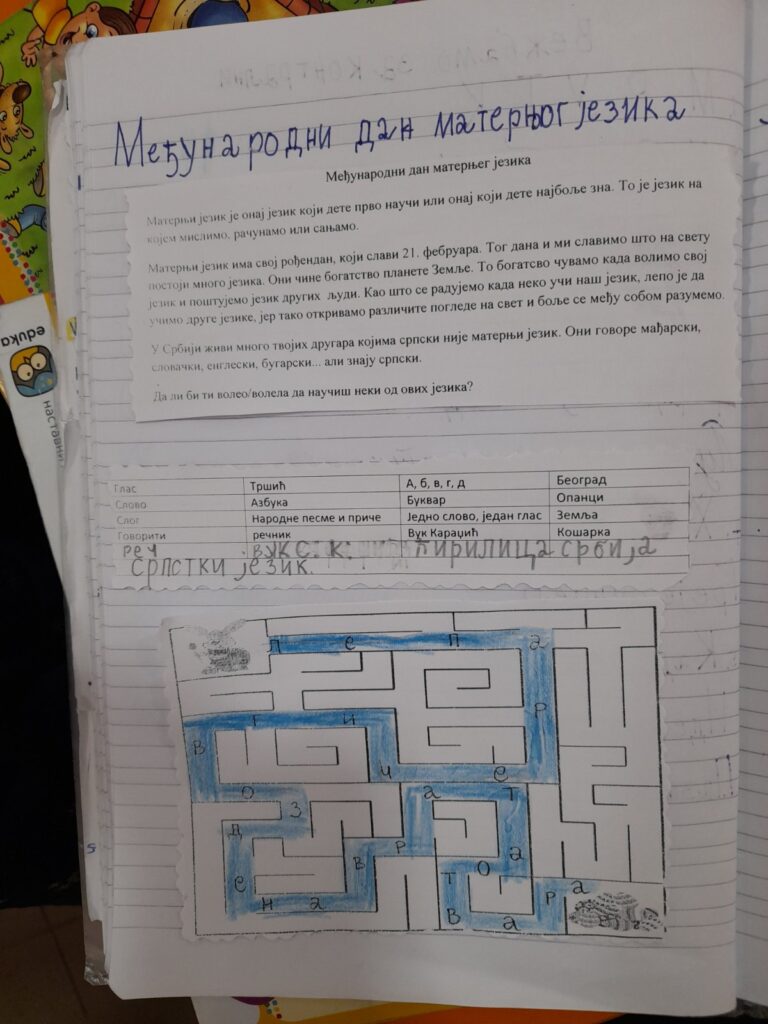 Међународни дан матерњог језика
Међународни дан матерњег језика
Матерњи језик је онај језик који дете прво научи или онај који дете најбоље зна. То је језик на
којем мислимо, рачунамо или сањамо.
Матерњи језик има свој рођендан, који слави 21. фебруара. Тог дана и ми славимо што на свету
постоји много језика. Они чине богатство планете Земље. То богатсво чувамо када волимо свој
језик и поштујемо језик других људи. Као што се радујемо када неко учи наш језик, лепо је да
учимо друге језике, јер тако откривамо различите погледе на свет и боље се међу собом разумемо.
У Србији живи много твојих другара којима српски није матерњи језик. Они говоре мађарски,
словачки, енглески, бугарски... али знају српски.
Да ли би ти волео/волела да научиш неки од ових језика?
Глас Тршић А, б, в, г, д Београд
Слово Азбука Буквар Опанци
Слог Народне песме и приче Једно слово, један глас Земља
Говорити речник Вук Караџић Кошарка
реч вук с. к. ћирилица србија
српстки језик.
л е п а р е ч и г в о з д е н а в р а т а о т в а р а
eduka
наставни